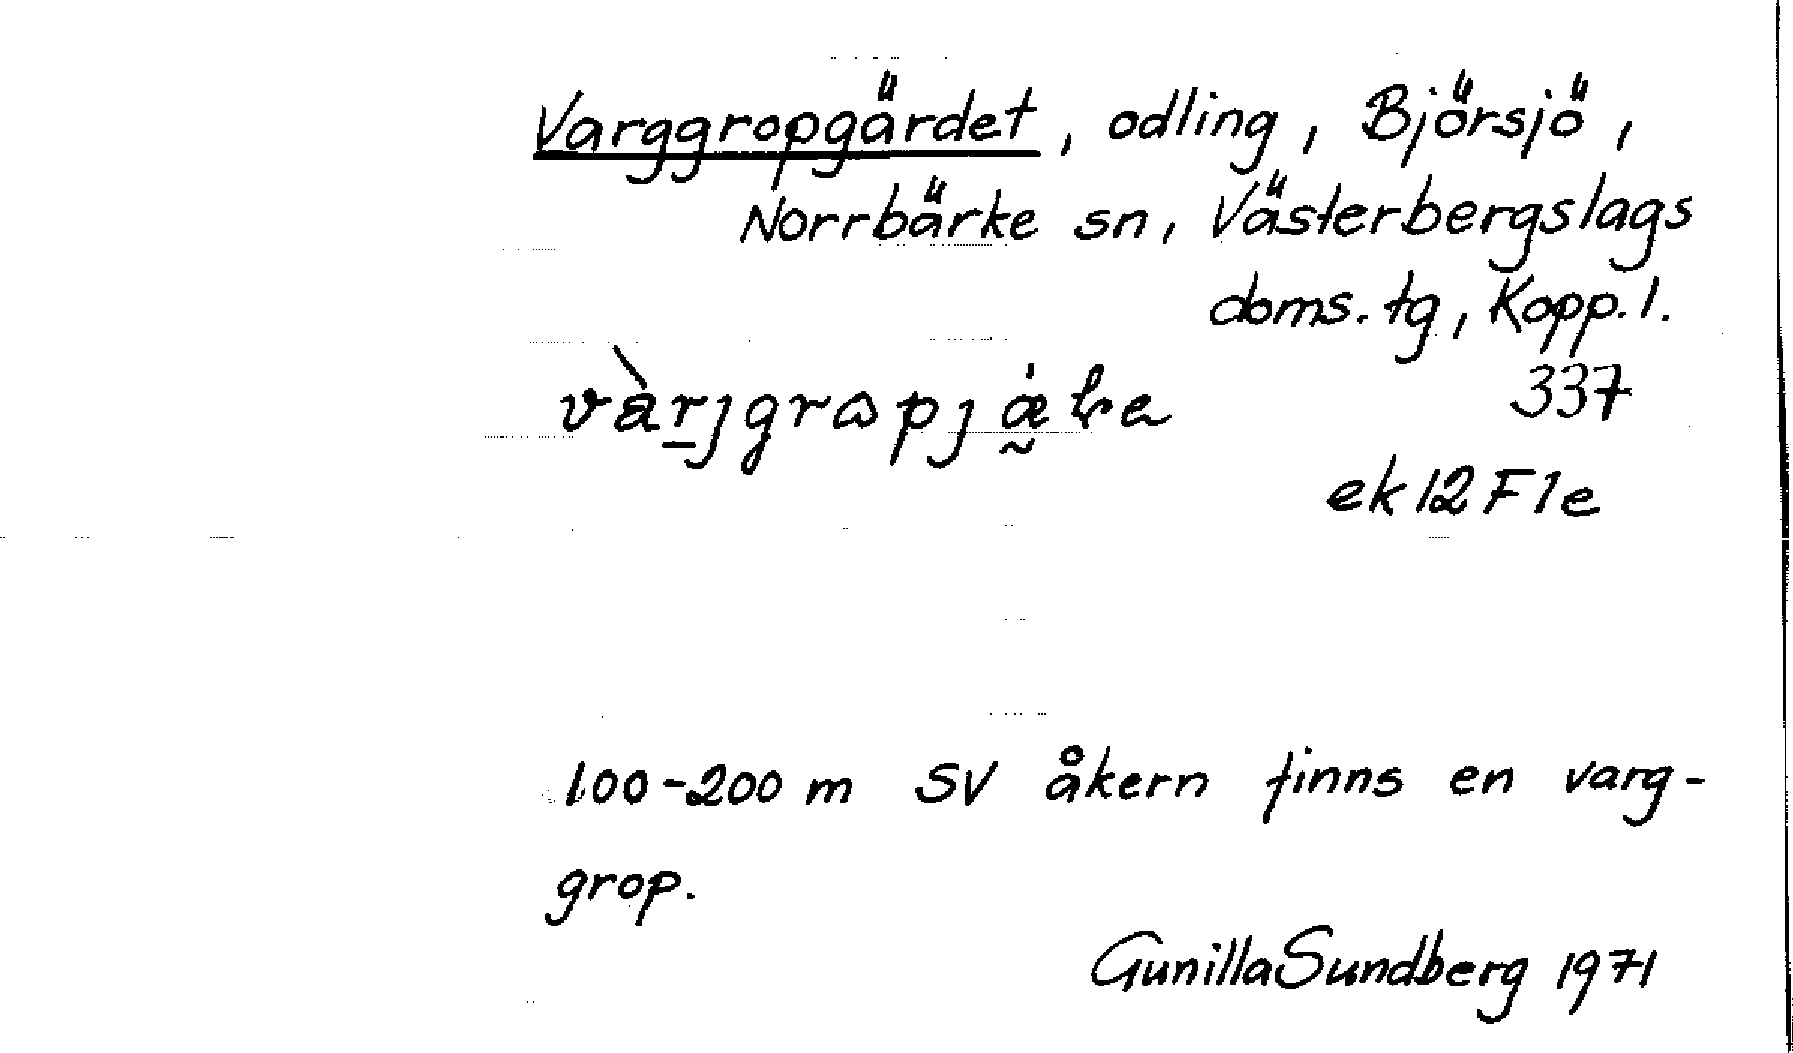 Varggropgärdet, odling, Björsjö,
Norrbärke sn, Västerbergslags
doms. tg, Kopp. l.
337
ek 12 F 1 e
100-200 m SV åkern finns en varg-
grop.
Gunilla Sundberg 1971